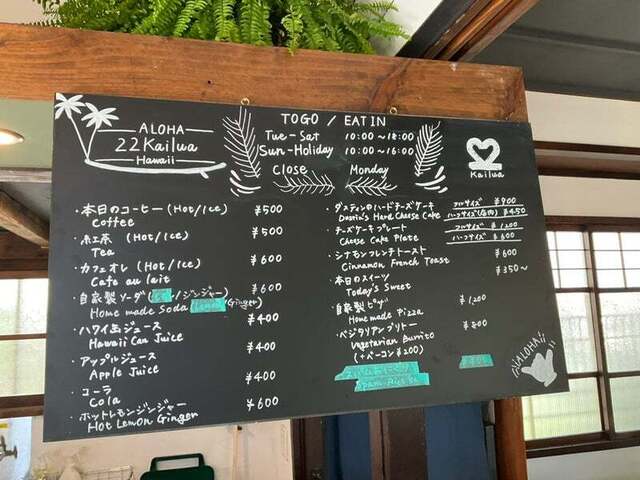 ALOHA
22 Kailua
Hawaii
TOGO / EAT IN
Tue - Sat 10:00～18:00
Sun - Holiday 10:00～16:00
Close Monday
Kailua
・本日のコーヒー (Hot/Ice) ¥500
Coffee
・紅茶 (Hot/Ice) ¥500
Tea
・カフェオレ (Hot/Ice) ¥600
Cafe au lait
・自家製ソーダ ジンジャー) ¥600
Home made Soda Ginger)
・ハワイ缶ジュース ¥400
Hawaii Can Juice
・アップルジュース ¥400
Apple Juice
・コーラ ¥400
Cola
・ホットレモンジンジャー ¥600
Hot Lemon Ginger
・ダスティンのハードチーズケーキ フルサイズ ¥900
Dustin's Hard Cheese Cake ハーフサイズ ¥450
・チーズケーキプレート フルサイズ ¥1,200
Cheese Cake Plate ハーフサイズ ¥600
・シナモンフレンチトースト ¥600
Cinnamon French Toast
・本日のスイーツ ¥350～
Today's Sweet
・自家製ピザ ¥1,200
Homemade Pizza
・ベジタリアンブリトー ¥800
Vegetarian Burrito
(+ベーコン ¥200)
ALOHA!!